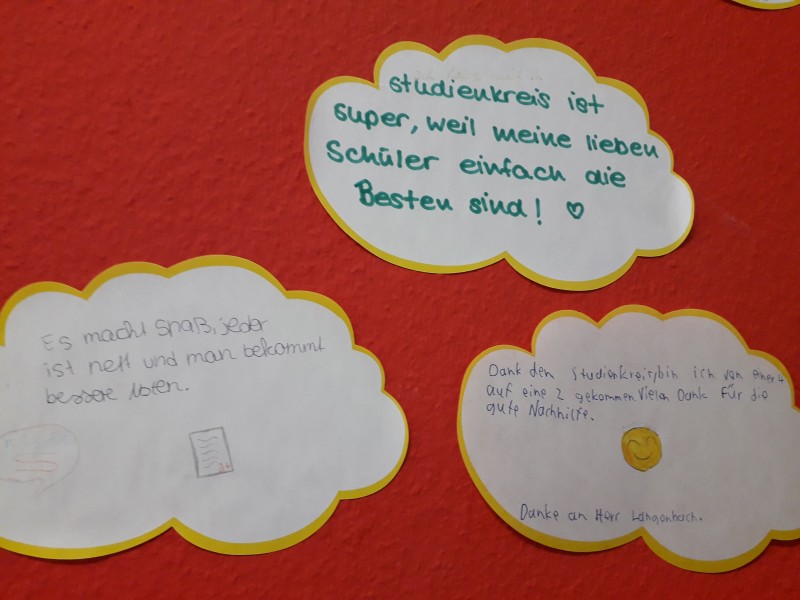 studienkreis ist
super, weil meine lieben
Schüler einfach die
Besten sind! ♡
Es macht Spaß, jeder
ist nett und man bekommt
bessere Noten.
Dank den Studienkreis bin ich von einer 4
auf eine 2 gekommen Vielen Dank für die
gute Nachhilfe.
Danke an Herr Langenbach.